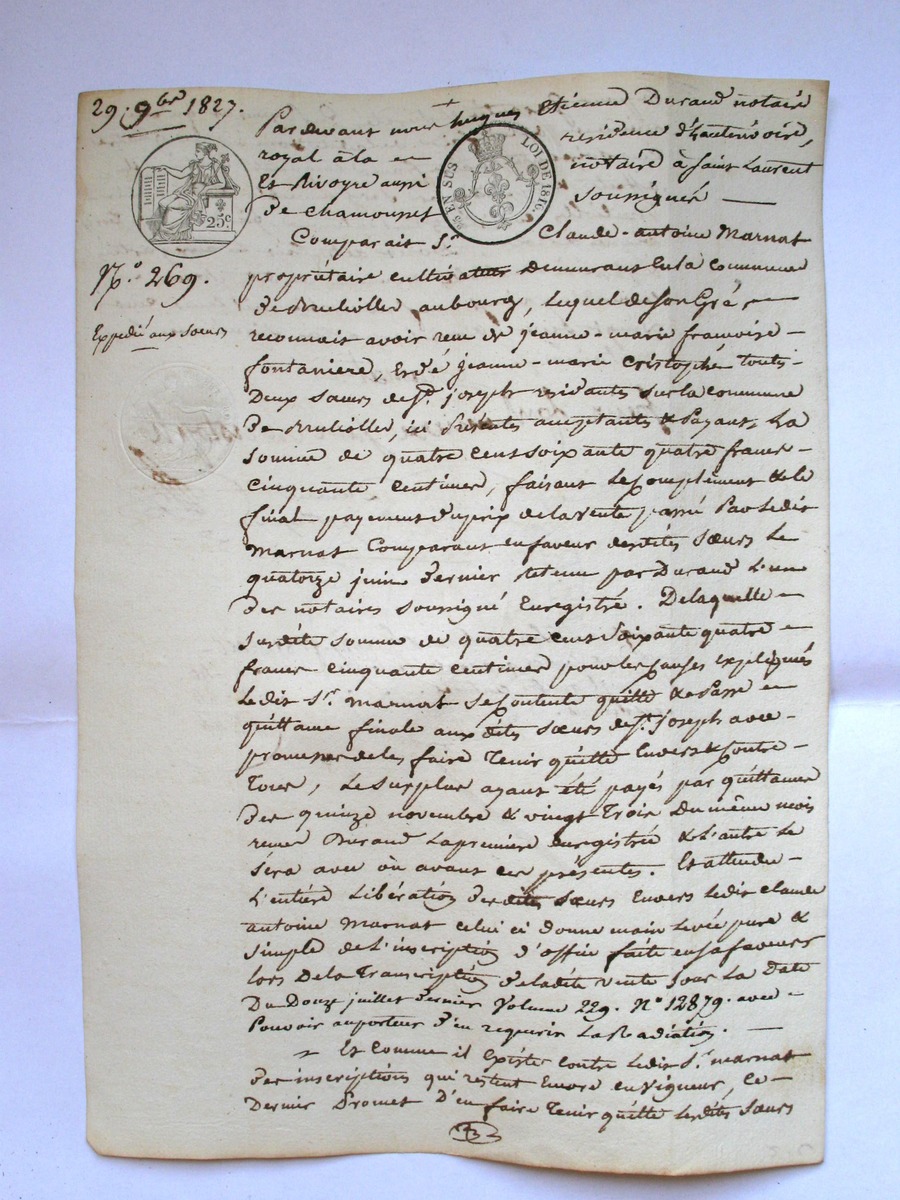 29. 9bre 1827.
Par devant nous hugues Etienne Durand notaire
royal à la residence d'hauterivoire,
Et Rivoyre aussi notaire à Saint Laurent
De Chamousset soussignés
EN SUS LOI DE 1816.
25c.
Comparait Sr. Claude-antoine Marnat
No. 269.
propriétaire cultivateur demeurant En la Commune
De Brulliolle au bourg, lequel de son Gré
Expedié aux soeurs
reconnait avoir reçu de jeanne-marie françoise
fontaniere, Et de jeanne-marie Cristophe toutes
Deux sœurs de St. joseph residantes sur la commune
De Brulliolle, ici Présentes acceptantes & Payant, La
Somme de quatre cent soixante quatre francs
Cinquante Centimes, faisant le Complément & le
final payement du prix de la Vente passé Par Ledit
Marnat Comparant en faveur desdites Sœurs Le
quatorze juin Dernier retenue par Durand L'un
Des notaires soussigné Enregistré. De laquelle
Susdite somme de quatre cent soixante quatre
francs cinquante centimes pour les causes expliquées
Ledit Sr. Marnat se Contente quitte & Passe
quittance finale aux dites Sœurs de St. joseph avec
promesse de les faire Tenir quitte Envers & Contre
Tous, Le surplus ayant été payés par quittances
Des quinze novembre & vingt Trois du même mois
reçues Durand La premiere Enregistrée & L'autre Le
Sera avec où avant ces présentes. Et attendu
L'entière Libération desdites Sœurs Envers Ledit Claude
antoine Marnat celui ci donne main Levée pure &
Simple de L'inscription d'office faite en sa faveur
lors De la Transcription de ladite vente sous La Date
Du Douze juillet Dernier Volume 229. No 12879. avec
Pouvoir au porteur d'en requerir La Radiation.
Et Comme il Existe contre Ledit Sr. Marnat
Des inscriptions qui restent Encore en Vigueur, Ce
Dernier Promet D'en faire Tenir quitte Lesdites Sœurs